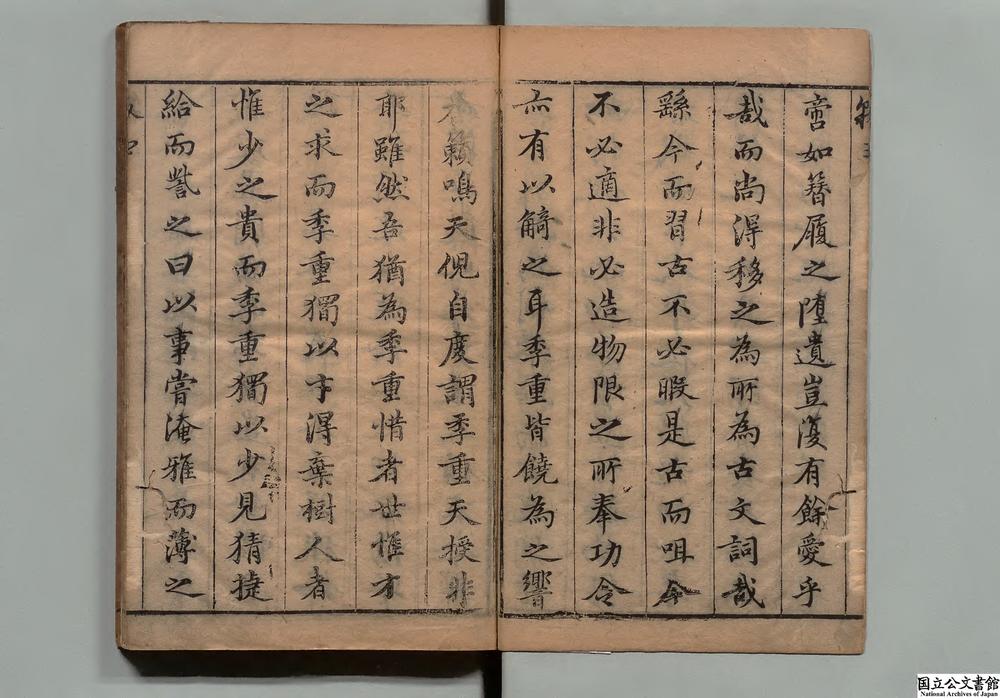 啻如簪履之墮遺豈復有餘愛乎
哉而尚得移之為所為古文詞哉
繇今而習古不必暇是古而咀今
不必適非必造物限之所奉功令
亦有以觭之耳季重皆饒為之響
籟鳴天倪自度謂季重天授非
耶雖然吾猶為季重惜者世惟才
之求而季重獨以才得棄樹人者
惟少之貴而季重獨以少見猜捷
給而訾之曰以事嘗淹雅而薄之
国立公文書館
National Archives of Japan